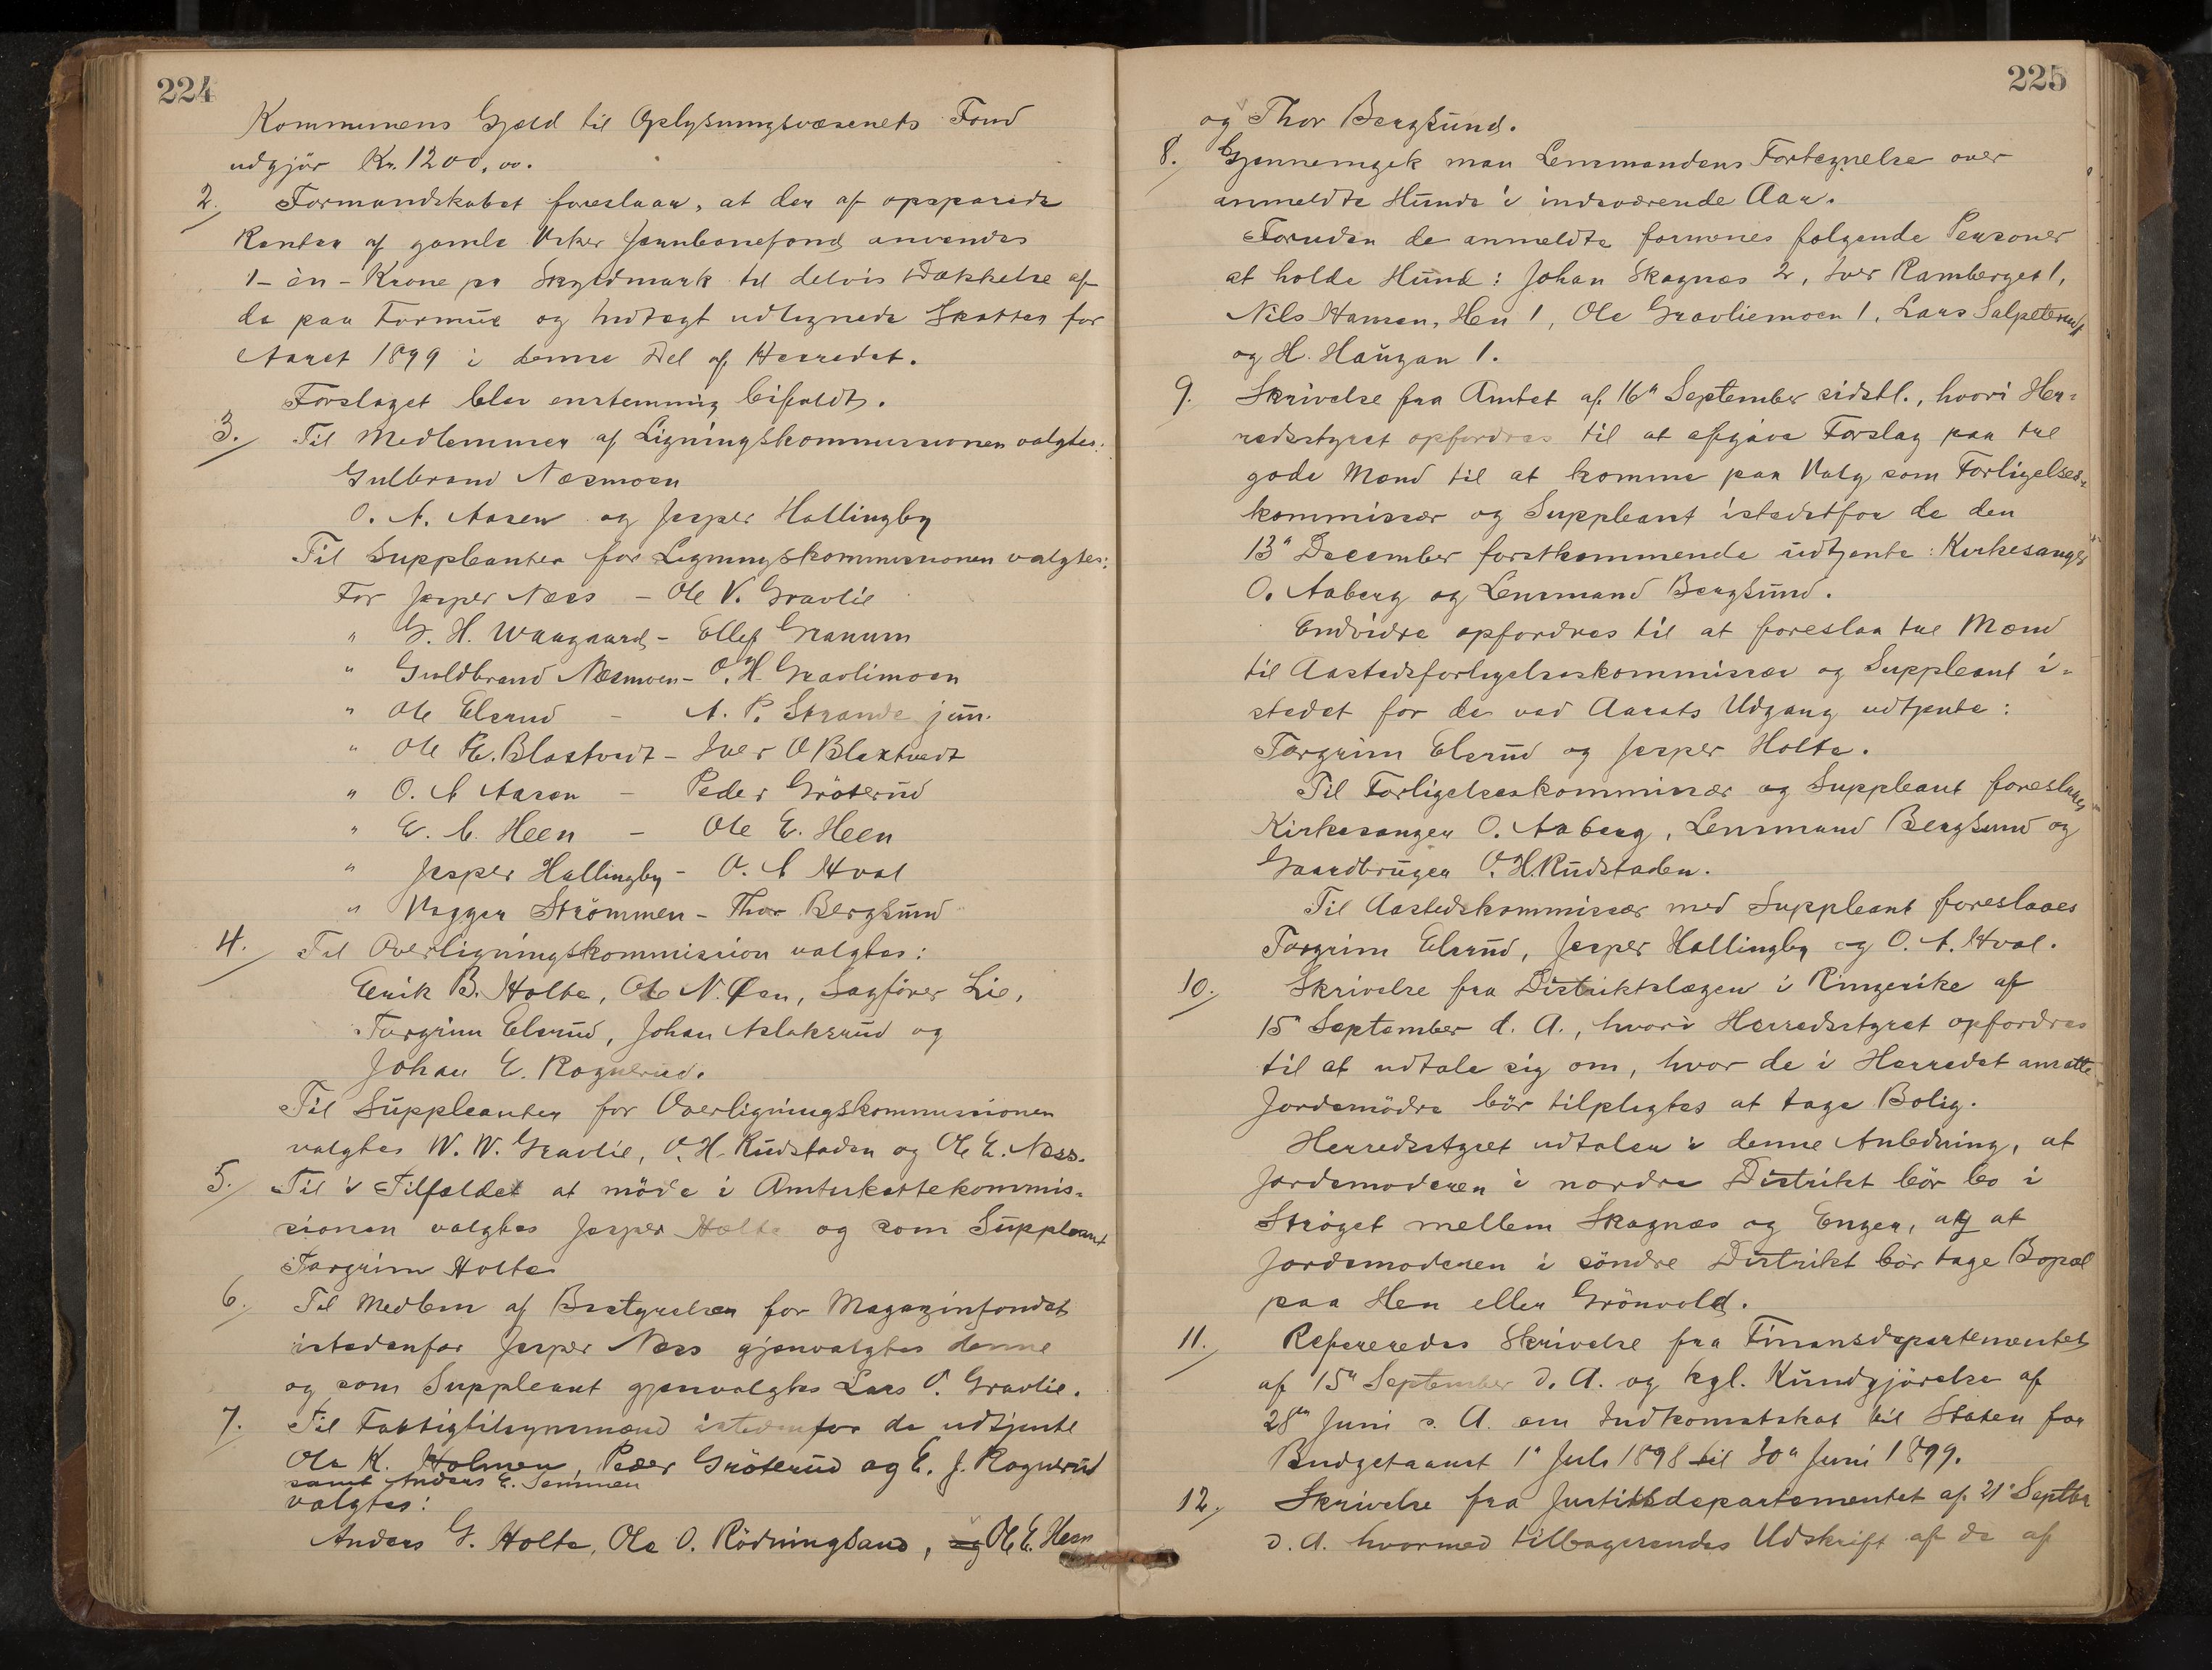 224
Kommunens Gjæld til Oplysningsvæsenets Fond
udgjör Kr. 1200,00.
2. Formandskabet foreslaar, at der af opsparede
Renter af gamle Aker Jernbanefond anvendes
1 - èn - Krone pr Skyldmark til delvis Dækkelse af
de paa Formue og Indtægt udlignede Skatter for
Aaret 1899 i denne Del af Herredet.
Forslaget blev enstemmig bifaldt.
3. Til Medlemmer af Ligningskommissionen valgtes:
Gulbrand Næsmoen
O. A. Aasen og Jesper Hallingby
Til Suppleanter for Ligningskommissionen valgtes:
For Jesper Næss - Ole V. Gravlie
" G. H. Waagaard - Ellef Granum
" Guldbrand Næsmoen - O. H. Gravlimoen
" Ole Elsrud - A. P. Strande jun.
" Ole E. Blaktvedt - Iver O Blaktvedt
" O. A Aasen - Peder Gröterud
" E. C. Heen - Ole E. Heen
" Jesper Hallingby - O. A Hval
" Vegger Strömmen - Thor Bergsund
4. Til Overligningskommission valgtes:
Erik B. Holte, Ole N. Øen, Sagförer Lie,
Torgrim Elsrud, Johan Aslaksrud og
Johan E. Rognerud.
Til Suppleanter for Overligningskommissionen
valgtes N. N. Gravlie, O. H. Rudstaden og Ole E. Næss.
5. Til i Tilfældet at möde i Amtsskattekommis-
sionen valgtes Jesper Holte og som Suppleant
Torgrim Holte
6. Til Medlem af Bestyrelsen for Magazinfondet
istedenfor Jesper Næss gjenvalgtes denne
og som Suppleant gjenvalgtes Lars O. Gravlie.
7. Til Fattigtilsynsmænd istedenfor de udtjente
Ole K. Holmen, Peder Gröterud og E. J. Rognerud
samt Anders E. Semmen
valgtes:
Anders G. Holte, Ole O. Rödningsand, og Ole E. Heen
225
og Thor Bergsund.
8. Gjennemgik man Lensmandens Fortegnelse over
anmeldte Hunde i indeværende Aar.
Foruden de anmeldte formenes følgende Personer
at holde Hund: Johan Skagnæs 2, Iver Ramberget 1,
Nils Hansen, Hen 1, Ole Gravliemoen 1, Lars
og H. Haugan 1.
9. Skrivelse fra Amtet af 16" September sidstl., hvori Her-
redsstyret opfordres til at afgive Forslag paa tre
gode Mænd til at komme paa Valg som Forligelses-
kommissær og Suppleant istedetfor de den
13" December førstkommende udtjente: Kirkesanger
O. Aaberg og Lensmand Bergsund.
Endvidre opfordres til at foreslaa tre Mænd
til Aastedsforligelseskommissær og Suppleant i-
stedet for de ved Aarets Udgang udtjente:
Torgrim Elsrud og Jesper Holte.
Til Forligelseskommissær og Suppleant foreslaaes
Kirkesanger O. Aaberg, Lensmand Bergsund og
Gaardbruger O. H. Rudstaden.
Til Aastedskommissær med Suppleant foreslaaes
Torgrim Elsrud, Jesper Hallingby og O. A. Hval.
10. Skrivelse fra Distriktslægen i Ringerike af
15 September d. A., hvori Herredsstyret opfordres
til at udtale sig om, hvor de i Herredet ansatte
Jordemödre bör tilpligtes at tage Bolig.
Herredsstyret udtaler i denne Anledning, at
Jordemoderen i nordre Distrikt bör bo i
Ströget mellem Skagnæs og Enger, og at
Jordemoderen i söndre Distrikt bör tage Bopæl
paa Hen eller Grönvold.
11. Refereredes Skrivelse fra Finansdepartementet
af 15" September d. A. og kgl. Kundgjörelse af
28de Juni s. A. om Indkomstskat til Staten for
Budgetaaret 1" Juli 1898 til 30" Juni 1899.
12. Skrivelse fra Justitsdepartementet af 21" Septbr
d. A. hvormed tilbagesendes Udskrift af de af